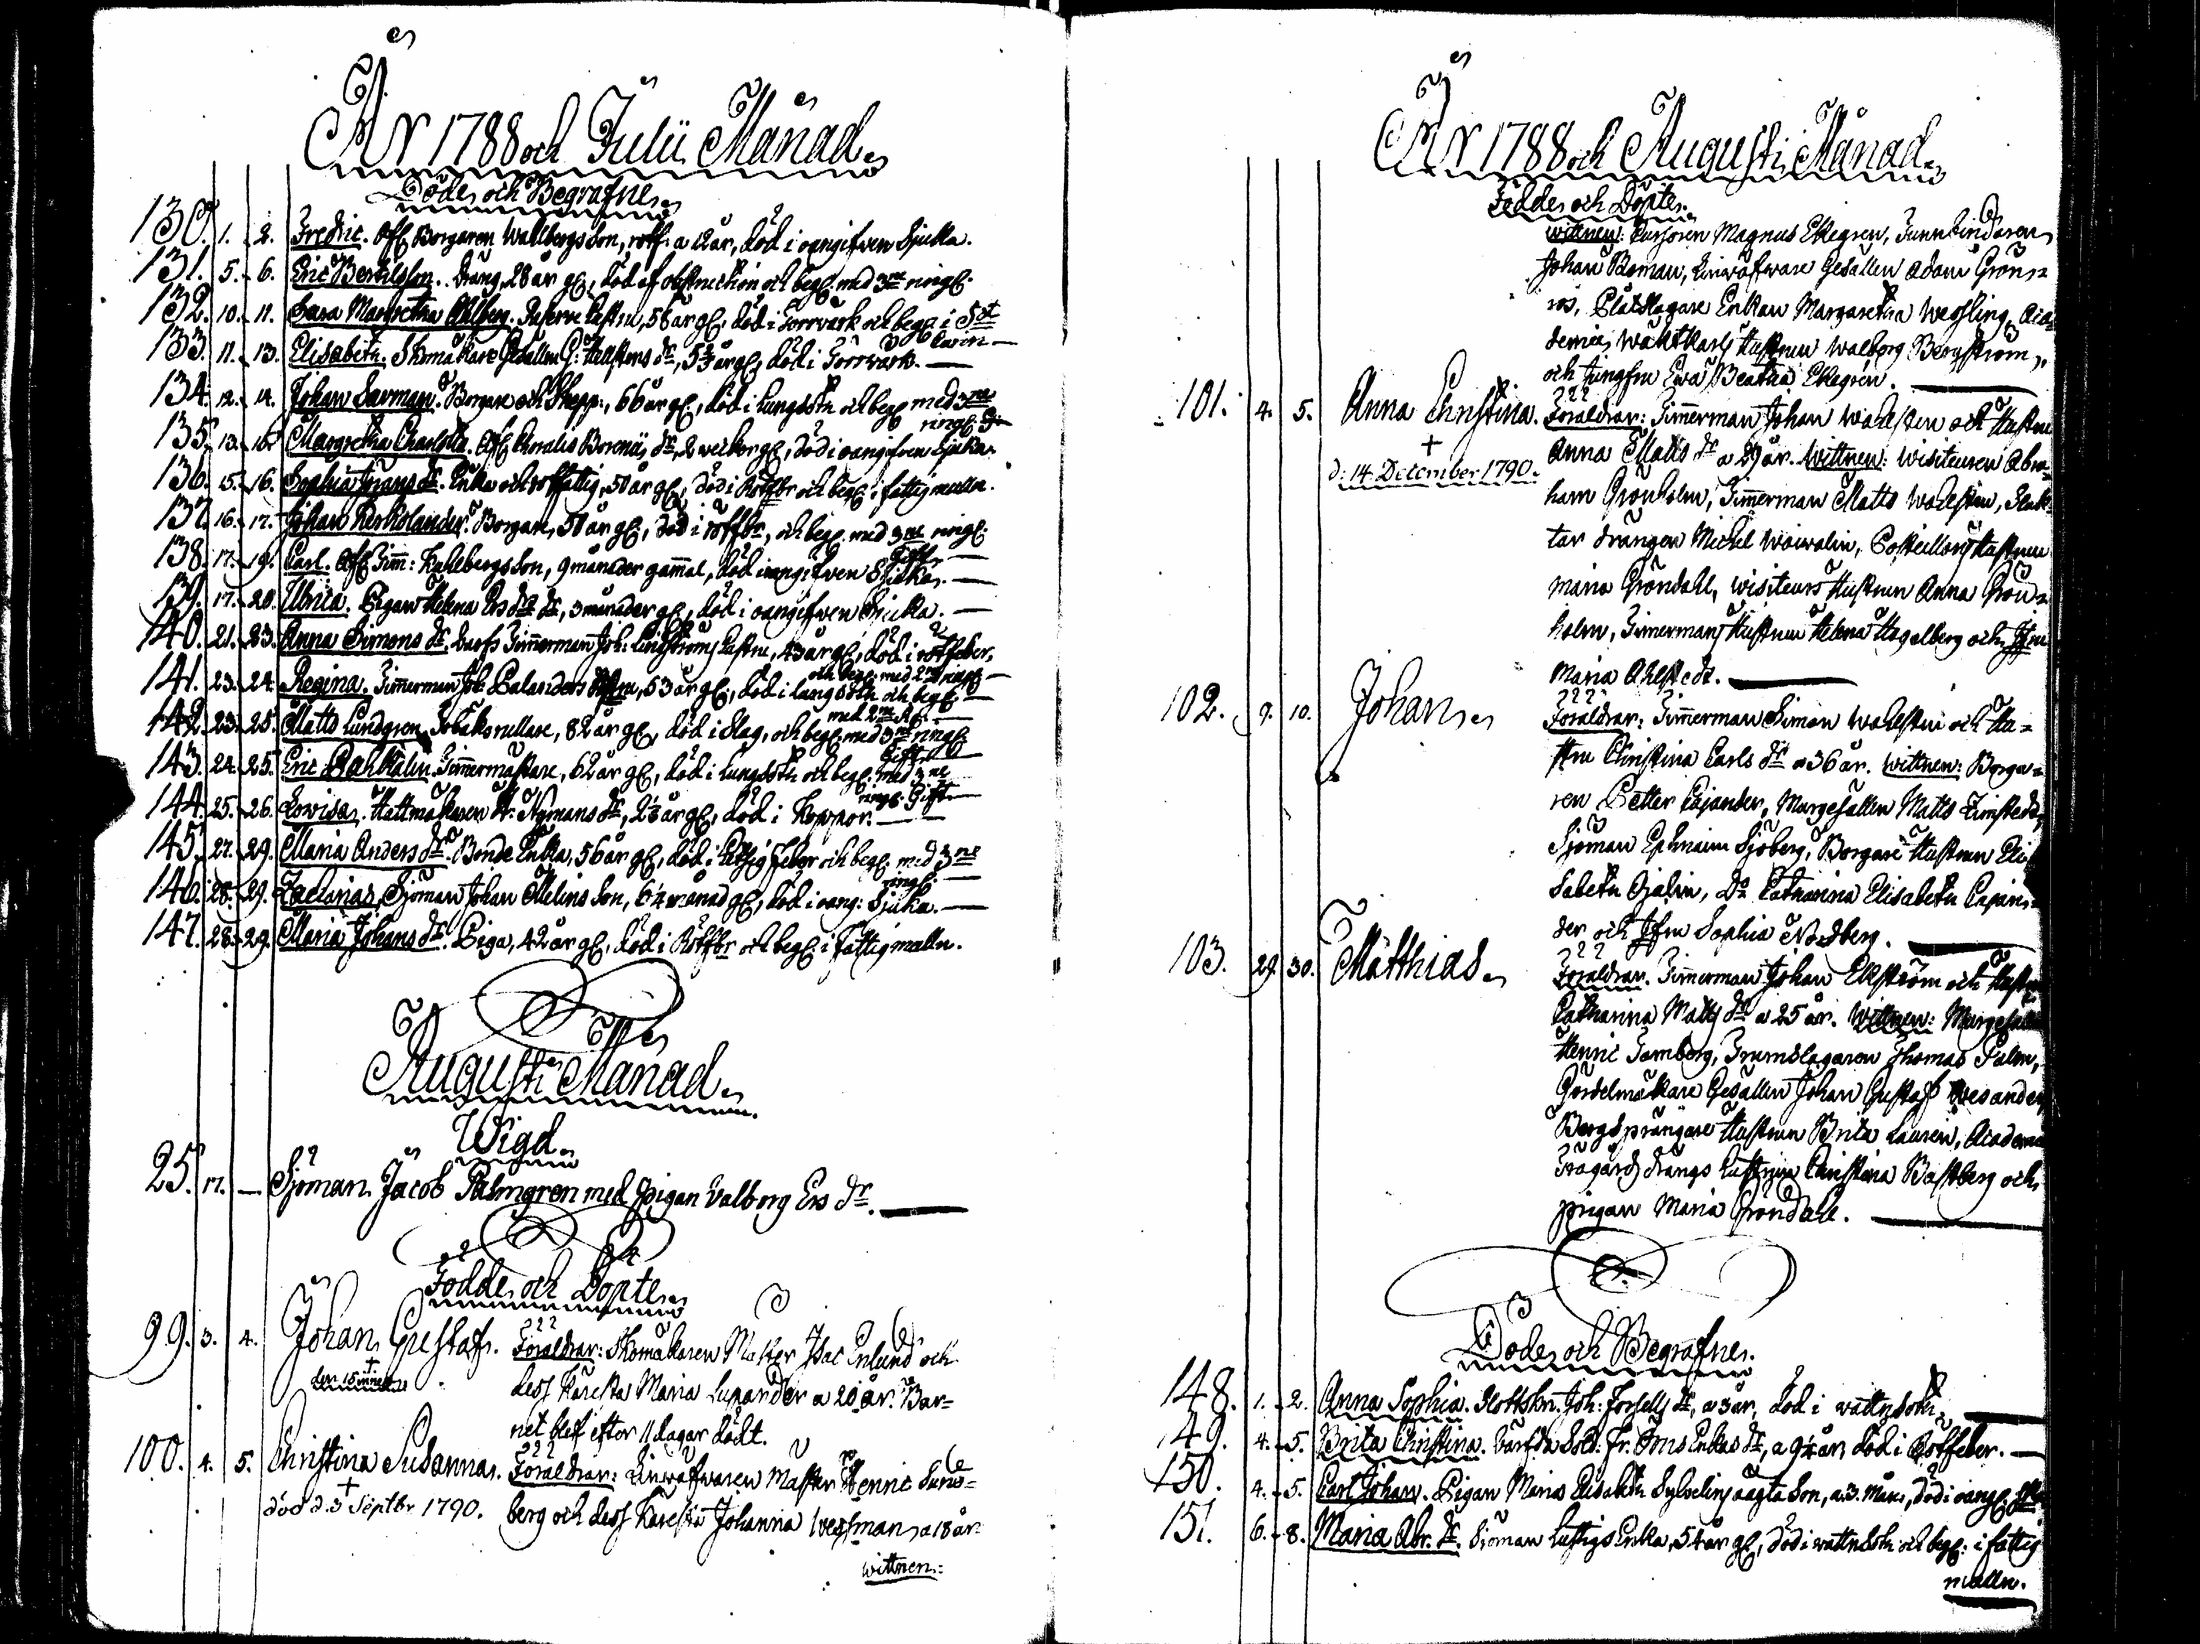 År 1788 och Julii Månad.
Döde och Begrafne.
130. 1. 2. Fredric. Afl. Borgaren Wahlbergs Son, a 12 år, död i oangifwen Sjuka.
131. 5. 6. Eric Bertilsson. Dräng, 28 år gl, död af obstruction och begl. med 3ne ringl.
132. 10. 11. Sara Margretha Ahlberg. Hustru, 58 år gl, död i Torrvärk och begl. i Sst
Claren
133. 11. 13. Elisabeth. Skomakare Gesällen G: Hellstens dr, 5 3/4 år gl, död i Torrvärk.
134. 12. 14. Johan Savman. Borgare och Skepp:, 66 år gl, död i Lungsot och begl med 3ne
ringl:
135. 13. 15. Margretha Charlotta. Afl. Choralis Borenii dr, 2 veckor gl, död i oangifven Sjuka.
136. 15. 16. Sophia Jörans dr. Enka och rotfattig, 50 år gl, död i Rötfbr och begl. i fattigmulln.
137. 16. 17. Johan Kerkolander. Borgare, 58 år gl, död i rötfbr, och begl. med 3ne ringl
Gift.
138. 17. 19. Carl. Afl Timm: Kahlbergs Son, 9 månader gammal, död i oangifwen Sjuka.
139. 17. 20. Ulrica. Pigan Helena Ers drs dr, 3 månader gl, död i oangifwen Sjuka.
140. 21. 23. Anna Simons dr. Warfs Timmerman Joh: Lindströms hustru, 43 år gl, död i rötfeber,
och begl. med 2 ringl
141. 23. 24. Regina. Timmerman Joh: Palanders hustru, 53 år gl, död i lungsoth och begl.
med 2ne
142. 23. 25. Matts Lundgren. Tobaksrullare, 82 år gl, död i Slag, och begl. med 3ne ringl
Gift.
143. 24. 25. Eric Dahlhalin. Timmermästare, 62 år gl, död i Lungsoth och begl. med 3ne
ringl. Gift
144. 25. 26. Lovisa. Hattmakaren Nymans dr, år gl, död i Koppor.
145. 27. 29. Maria Anders dr. Bonde Enka, 56 år gl, död i hitsig Feber och begl. med 3ne
ringl:
146. 28. 29. Zacharias. Sjöman Johan Melins Son, 6 1/4 månad gl, död i oang: Sjuka.
147. 28. 29. Maria Johans dr. Piga, 42 år gl, död i Rötfbr och begl. i fattigmulln.
Augusti Månad.
Wigd.
25. 17. Sjöman Jacob Palmgren med pigan Valborg Ers dr.
Födde och Döpte.
99. 3. 4. Johan Gustaf. Föräldrar: Skomakaren Mäster Isac Enlund och
+
dess Käresta Maria Lupander a 20 år. Bar=
net blef efter 11 dagar dödt.
100. 4. 5. Christina Susanna. Föräldrar: Linwäfwaren Mäster Henric Sund=
+
död d. 3 Septbr 1790. berg och dess Käresta Johanna Wessman, a 18 år
wittnen:
År 1788 och Augusti Månad.
Födde och Döpte.
wittnen: Cursoren Magnus Ekegren, Tunnbindaren
Johan Boman, Linwäfware Gesällen Adam Grön=
ros, Plåtslagare Enkan Margaretha Wessling, Aca=
demiæ Wahtkarls Hustrun Walborg Bergström,
och Jungfru Ewa Beatha Ekegrén.
101. 4. 5. Anna Christina. Föräldrar: Timmerman Johan Wahlsten och Hustru
+
d: 14 December 1790. Anna Matts dr a 29 år. Wittnen: Wisiteuren Abra=
ham Grönholm, Timmerman Matts Wahlsten, Slak=
tar drängen Michel Woiwalin, Postiljons Hustrun
Maria Gröndahl, Wisiteurs Hustrun Anna Grön=
holm, Timmermans Hustrun Helena Hagelberg och Jfru
Maria Ahlstedt.
102. 9. 10. Johan. Föräldrar: Timmerman Simon Wahlsten och Hu=
stru Christina Carls dr a 36 år. wittnen: Borga=
ren Petter Cajander, Murgesällen Matts Timstedt,
Sjöman Ephraim Sjöberg, Borgare Hustrun Eli=
sabeth Ojalin, Do Catharina Elisabeth Cajan=
der och Jfru Sophia Nordberg.
103. 29. 30. Matthias. Föräldrar: Timmerman Johan Ekström och Hustru
Catharina Matts dr a 25 år. Wittnen: Murgesällen
Henric Tamberg, Trumslagaren Thomas Palm,
Gördelmakare Gesällen Johan Gustaf Wesander,
Bergsprängare Hustrun Brita Laurén, Academiæ
Trägårds drängs hustrun Christina Bastberg och
pigan Maria Gröndahl.
Döde och Begrafne.
148. 1. 2. Anna Sophia. Slottskn. Joh: Forsells dr, a 3 år, död i wattusoht.
149. 4. 5. Brita Christina. Varfda Sold: Fr. Öns Enkas dr, a 9 1/4 år, död i Rötfeber.
150. 4. 5. Carl Johan. Pigan Maria Elisabeth Sylvelins oägta Son, a 3. Mån, död i oangl.
151. 6. 8. Maria Abr. dr. Sjöman Lustigs Enka, 54 år gl, död i wattusoth och begl: i fattig
mulln.